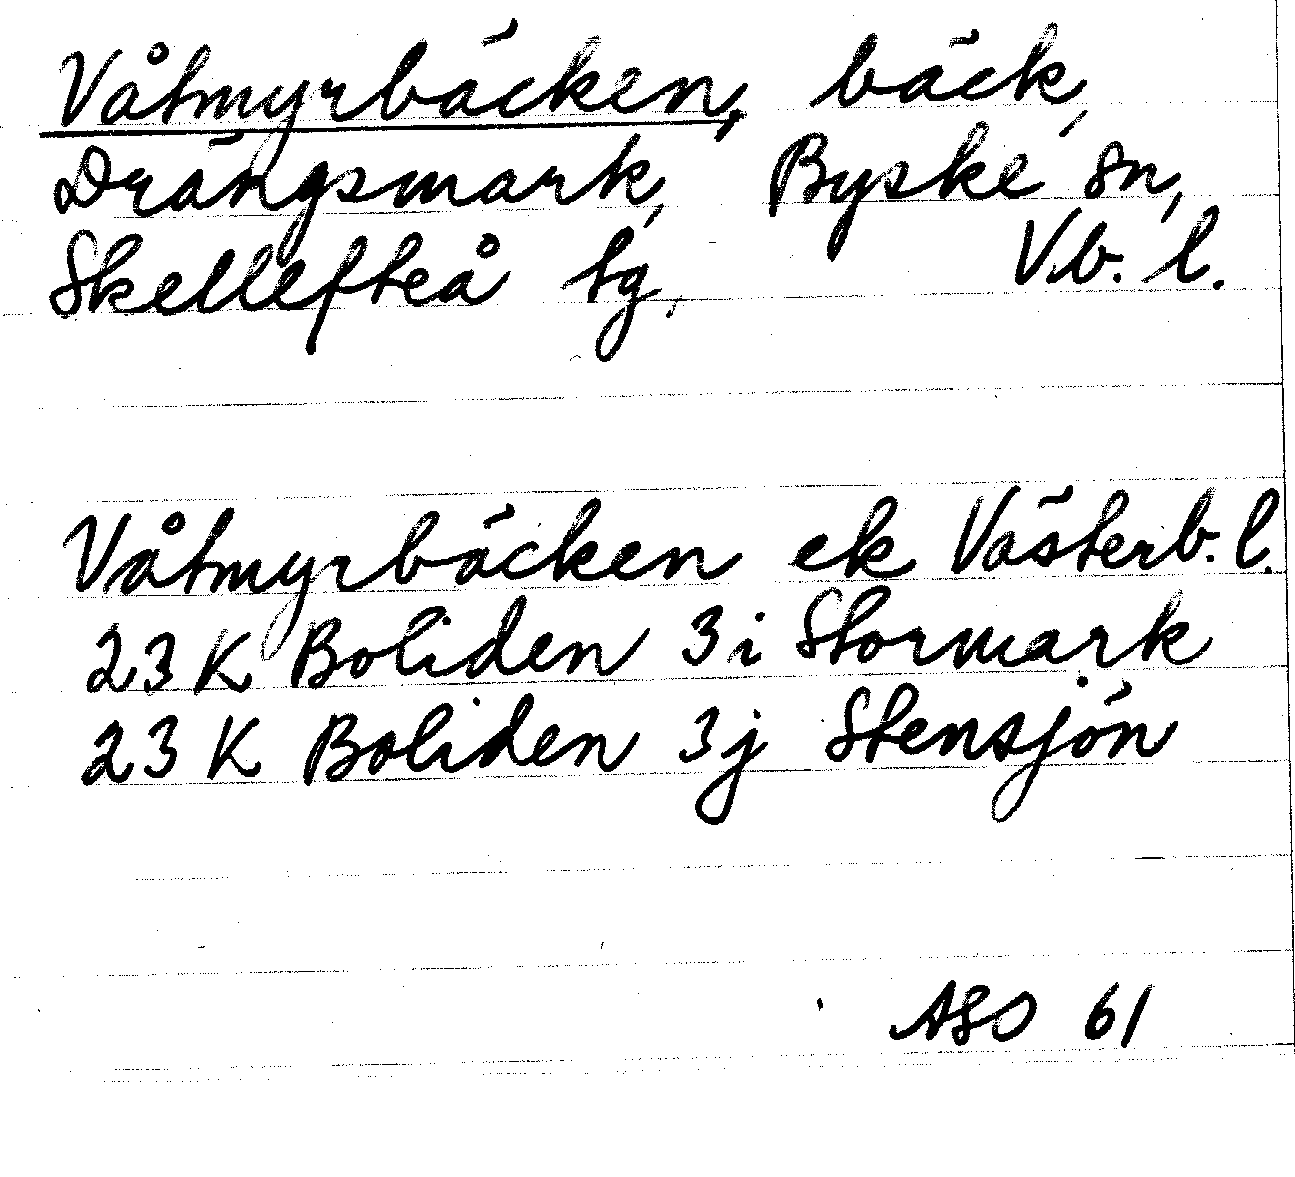 Våtmyrbäcken, bäck,
Drängsmark, Byske sn,
Skellefteå tg, Vb. l.
Våtmyrbäcken ek Västerb. l.
23 K Boliden 3 i Stormark
23 K Boliden 3 j Stensjön
ASO 61